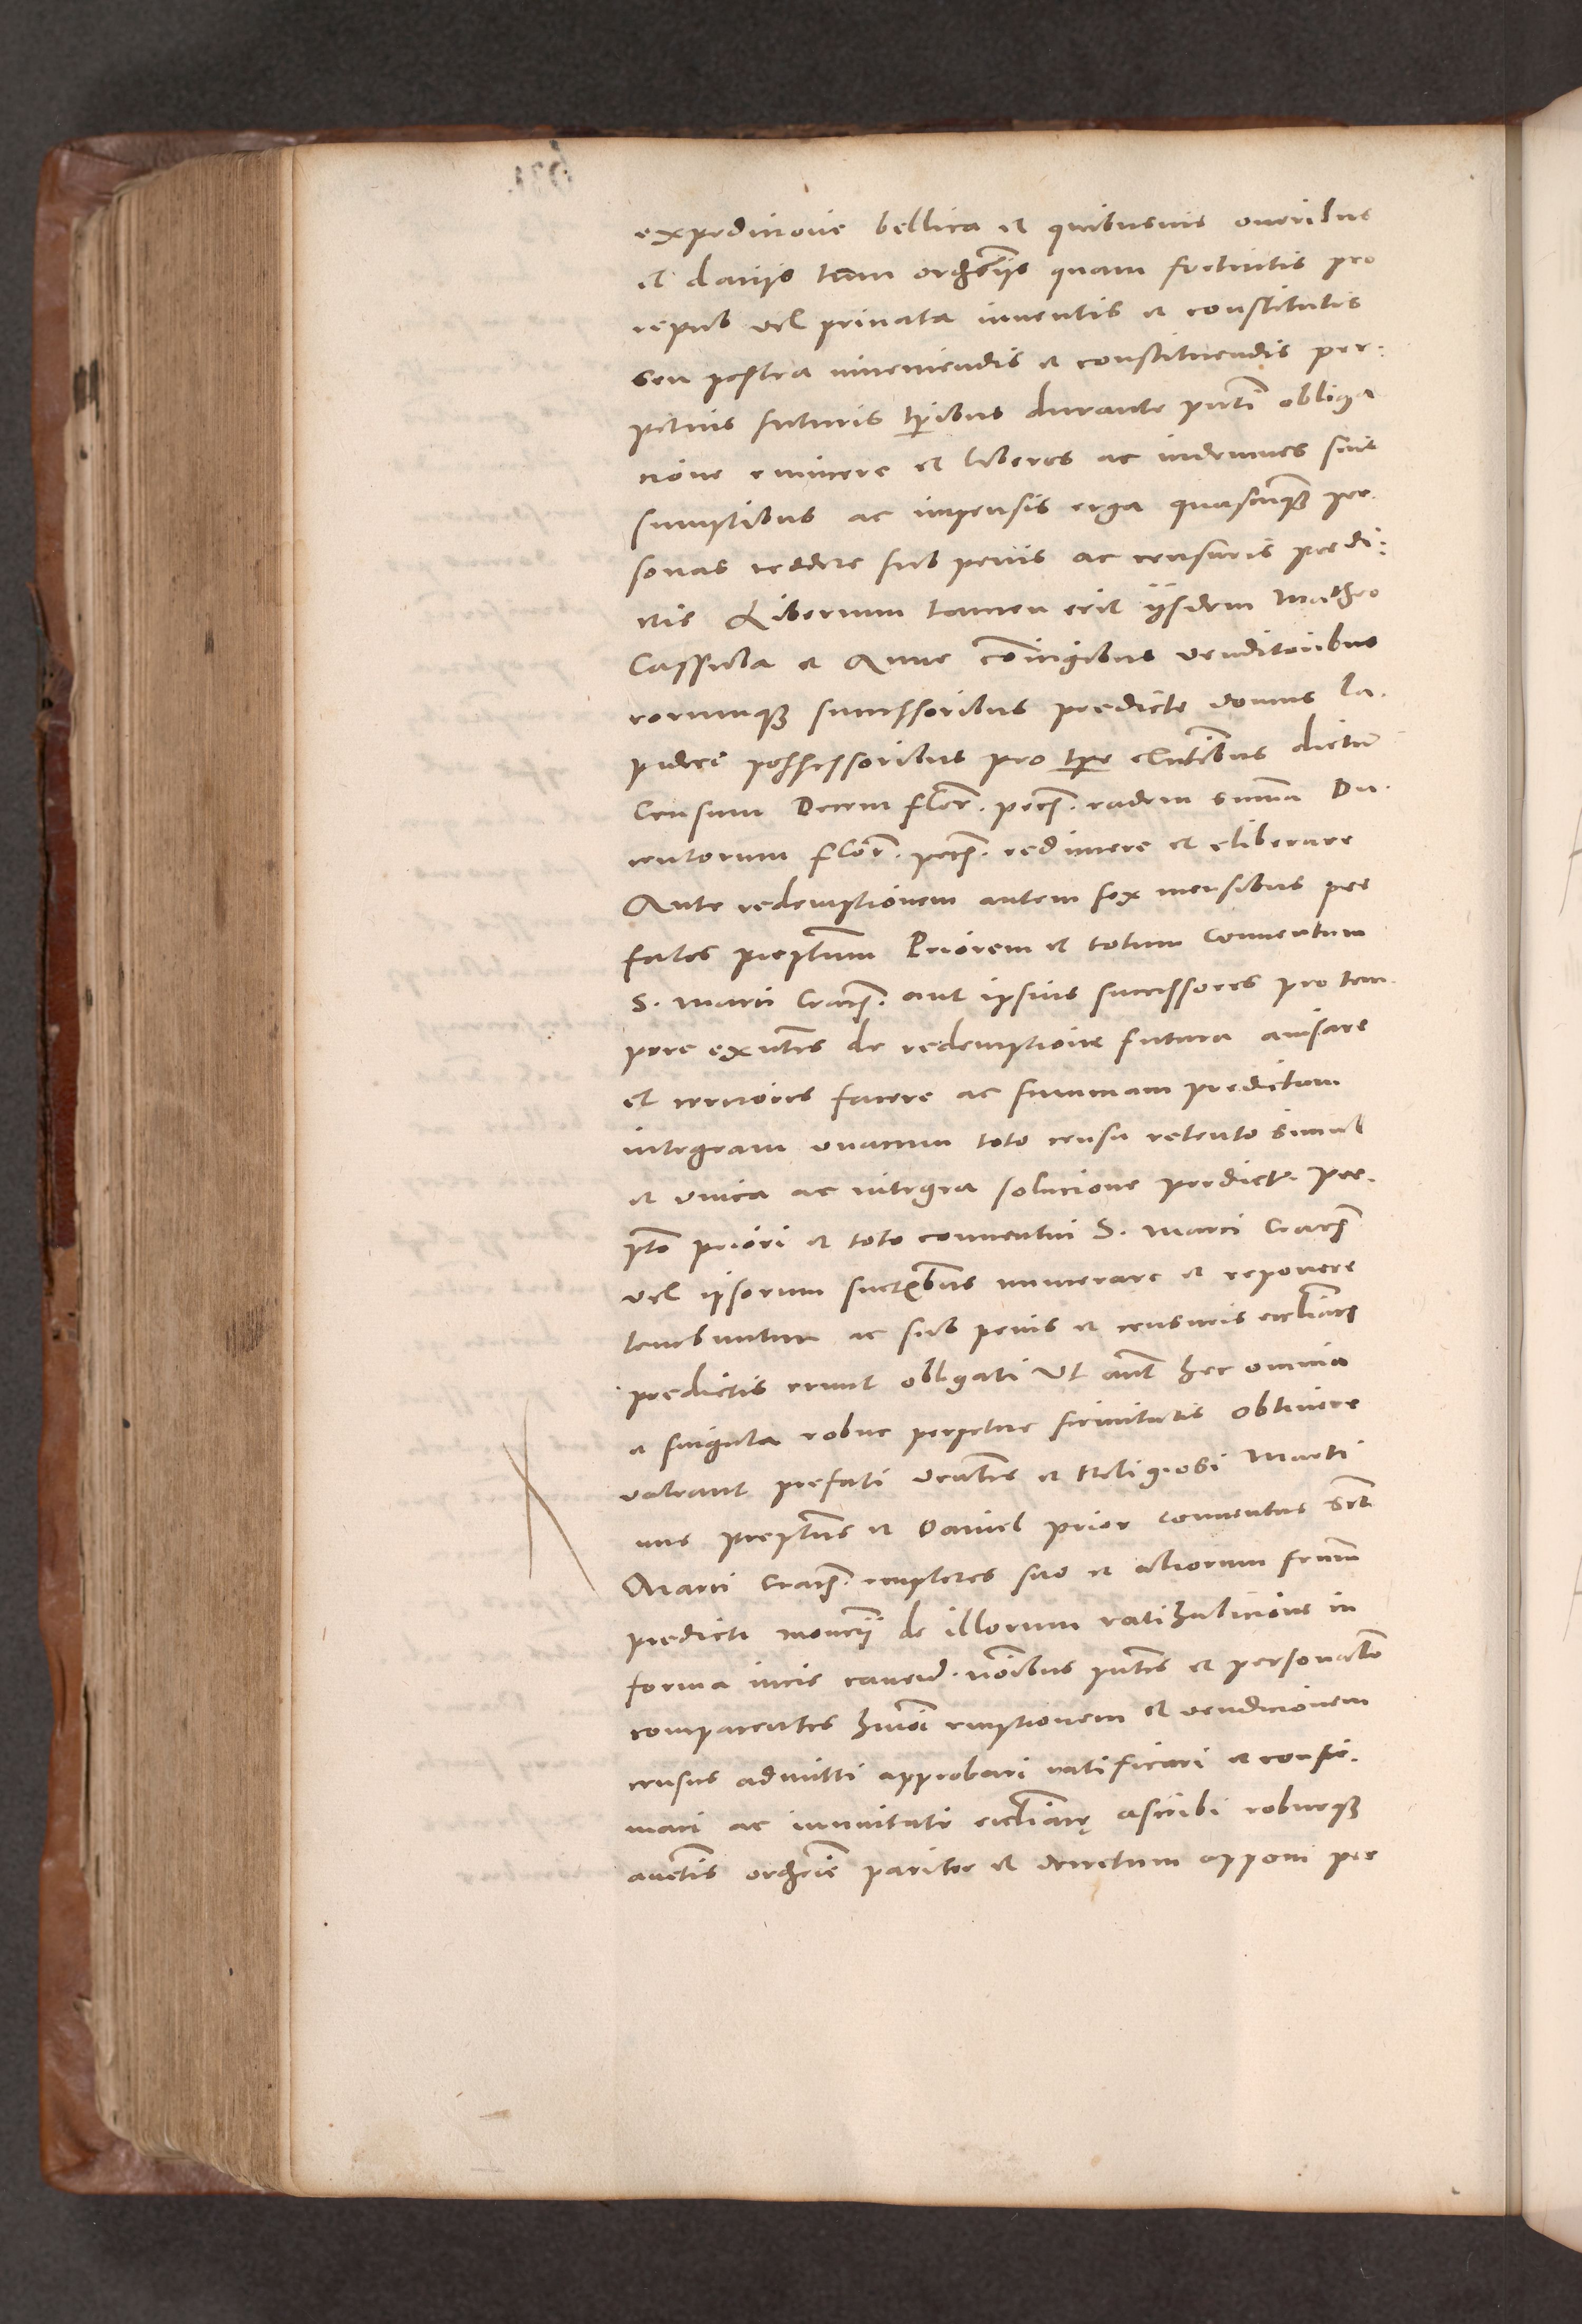 expeditione bellica et quibusuis oneribus
et datijs tam ordrijs quam fortuitis pro
repub vel priuata inuentis et constitutis
seu postea inueniendis et constituendis per:
petuis futuris tpibus durante pnti obliga
tione euincere et liberos ac indemnes suis
sumptibus ac impensis erga quascunq per
sonas reddere sub penis ac censuris predi:
ctis Liberum tamen erit ijsdem Matheo
Cassula et Anne coniugibus venditoribus
eorumq successoribus predicte domus la.
pidee possessoribus pro tpe extntibus dictu
Censum Decem flor. pecs. eadem summa Du.
centorum flor. pecs. redimere et eliberare
Ante redemptionem autem sex mensibus pre
fatos preptum Priorem et totum Conuentum
S. Marci Cracs. aut ipsius successores pro tem.
pore extntes de redemptione futura auisare
et certiores facere ac summam predictam
integram vnacum toto censu retento simul
et vnica ac integra solucione predict. pre.
pto priori et toto conuentui S. Marci Cracs
vel ipsorum succribus numerare et reponere
tenebuntur ac sub penis et censuris ecclticis
predictis erunt obligati Vt aut hec omnia
et singula robur perpetue firmitatis obtinere
valeant prefati venbles et Religiosi Marti
nus preptus et Daniel prior conuentus Scti
Marci Cracs. emptores suo et aliorum frum
predicti mone͂rij de illorum ratihabicione in
forma iuris cauend. noibus pntes et personalr
comparentes hmoi emptionem et vendicionem
census admitti approbari ratificari et confir.
mari ac immunitati ecclticę ascribi roburq
auctis ordrie pariter et decretum apponi per